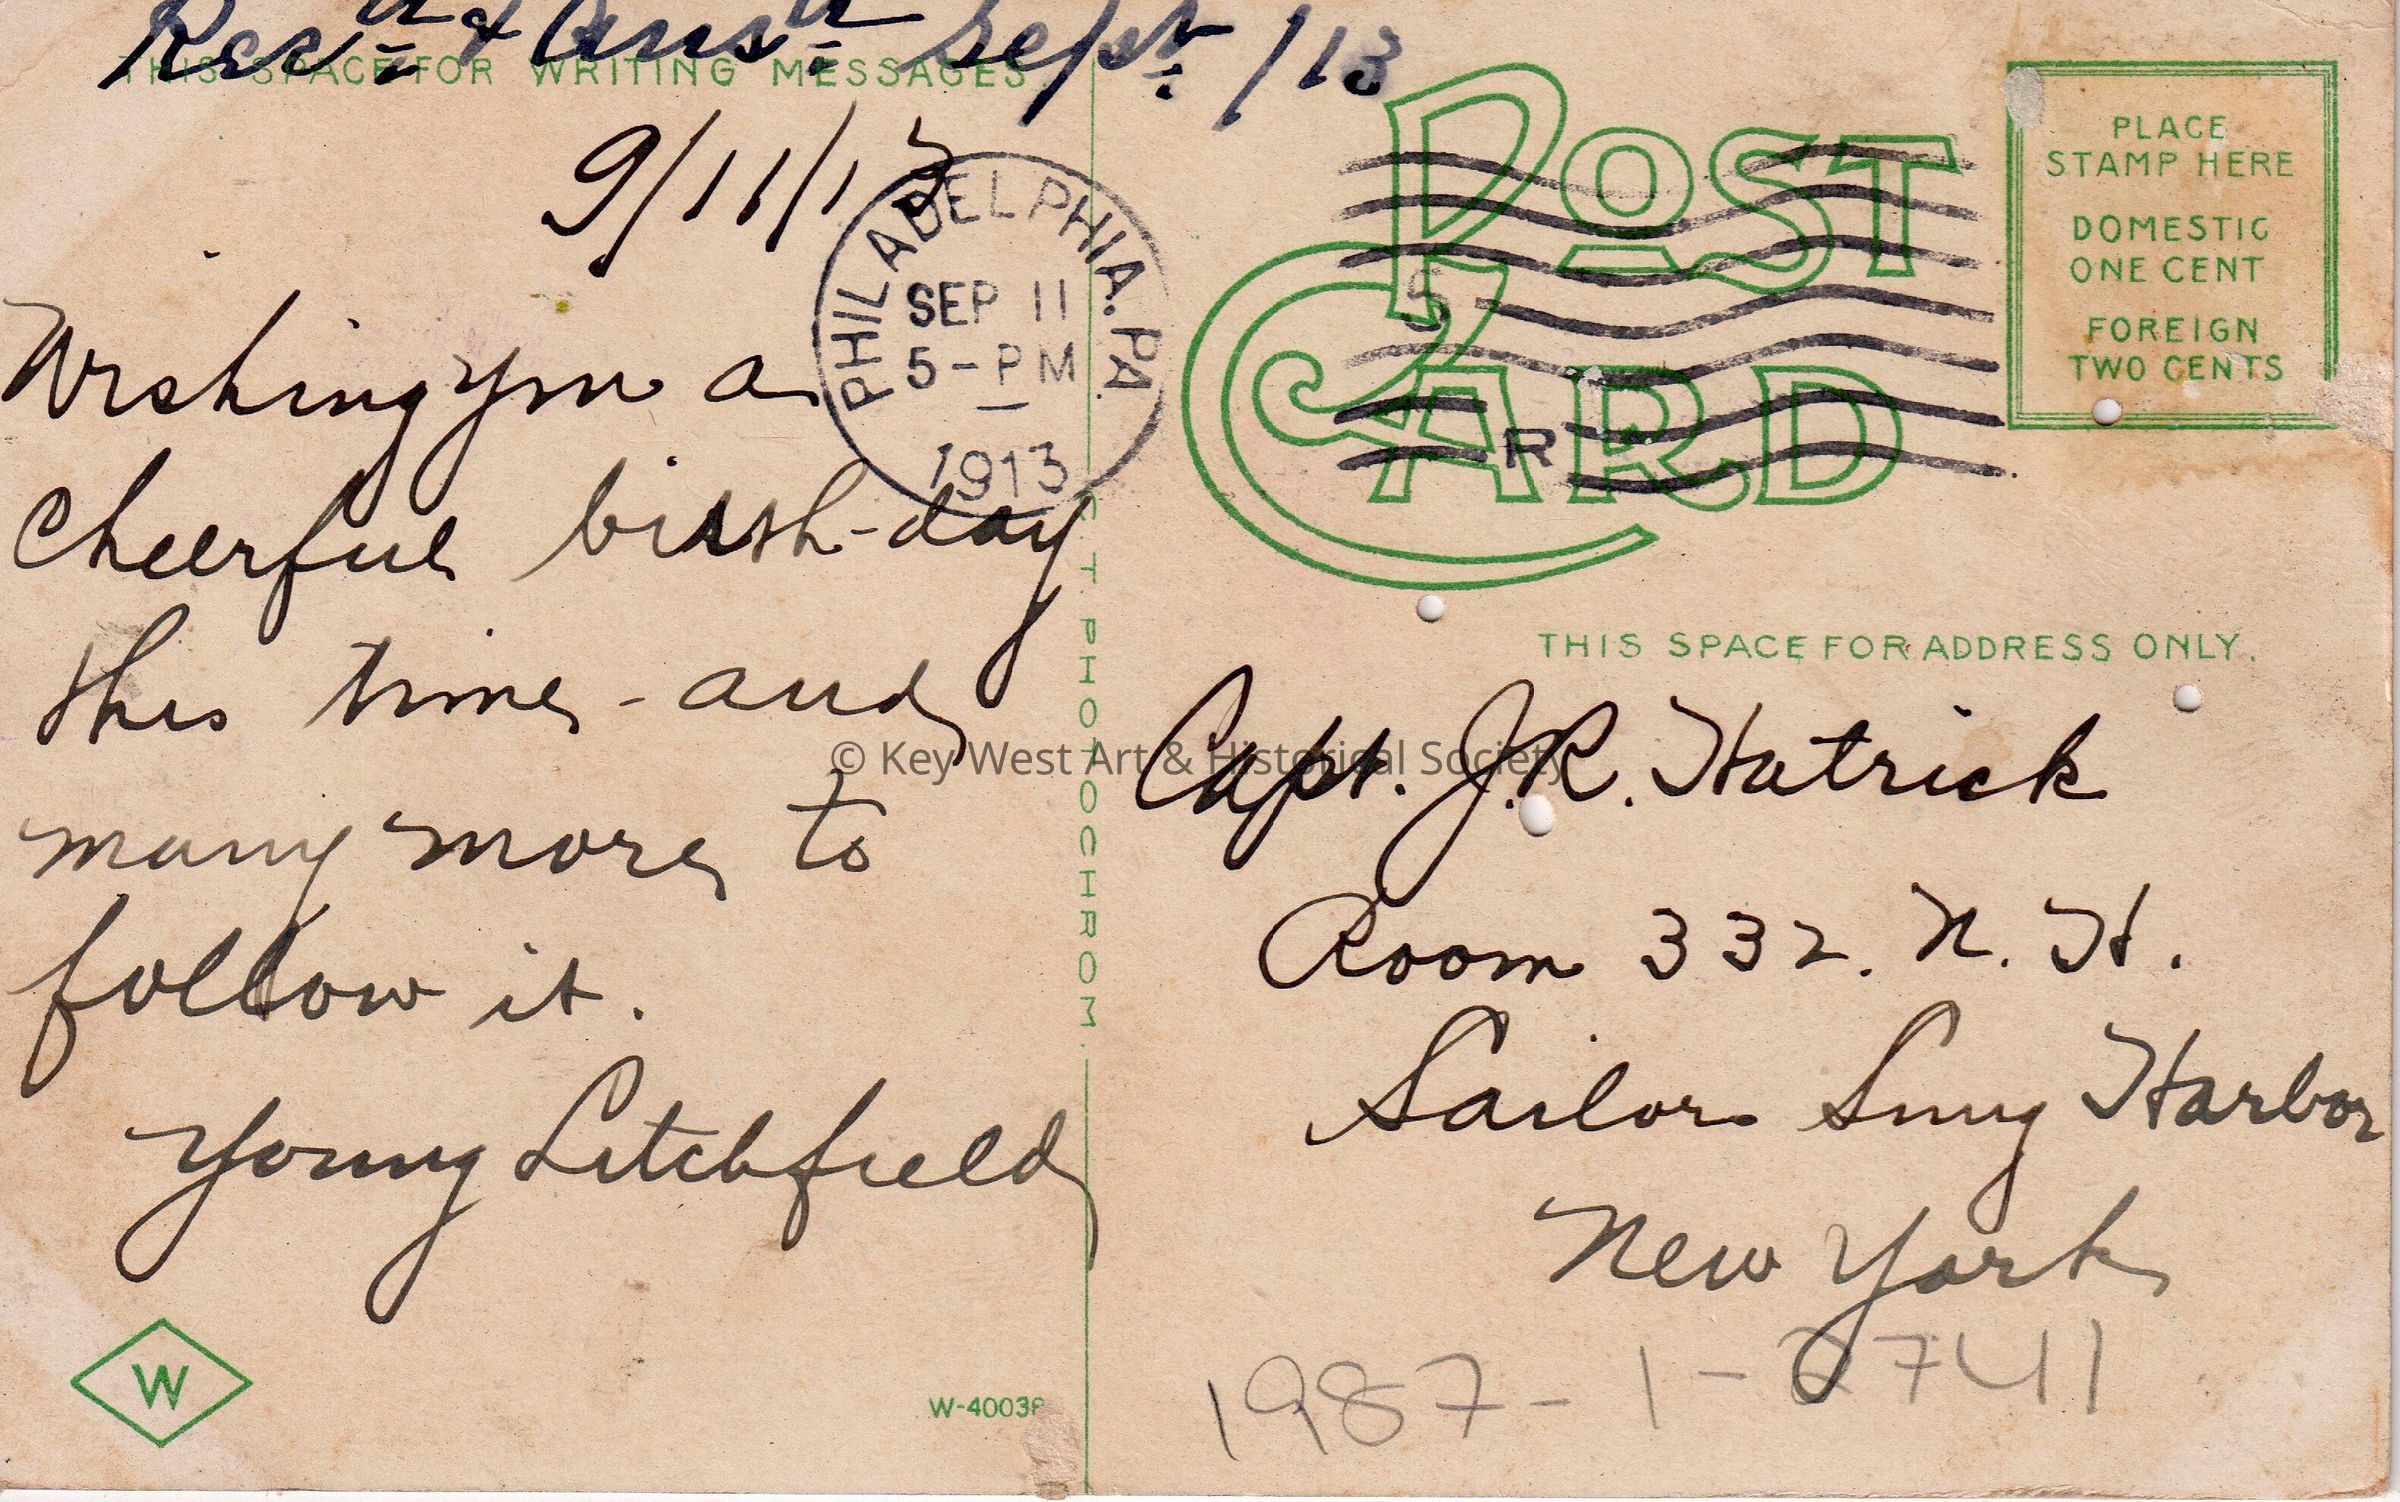 Rec.d & Ans.d Sept. /13
THIS SPACE FOR WRITING MESSAGES.
9/11/13
PHILADELPHIA. PA.
SEP 11
5-PM
1913
Wishing you a
cheerful birth-day
this time - and
many more to
follow it.
Young Litchfield
W
W-40038
C. T. PHOTOCHROM.
POST CARD
5
R
PLACE
STAMP HERE
DOMESTIC
ONE CENT
FOREIGN
TWO CENTS
THIS SPACE FOR ADDRESS ONLY.
Capt. J. R. Hatrick
Room 332. N. H.
Sailor Snug Harbor
New York
1987-1-2741
© Key West Art & Historical Society